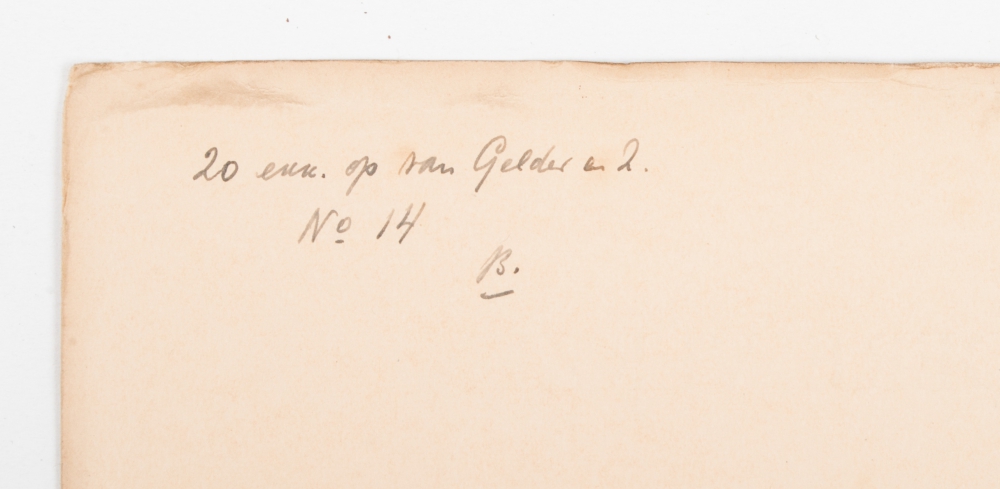 20 exx. op van Gelder a 2.
Nº 14
B.